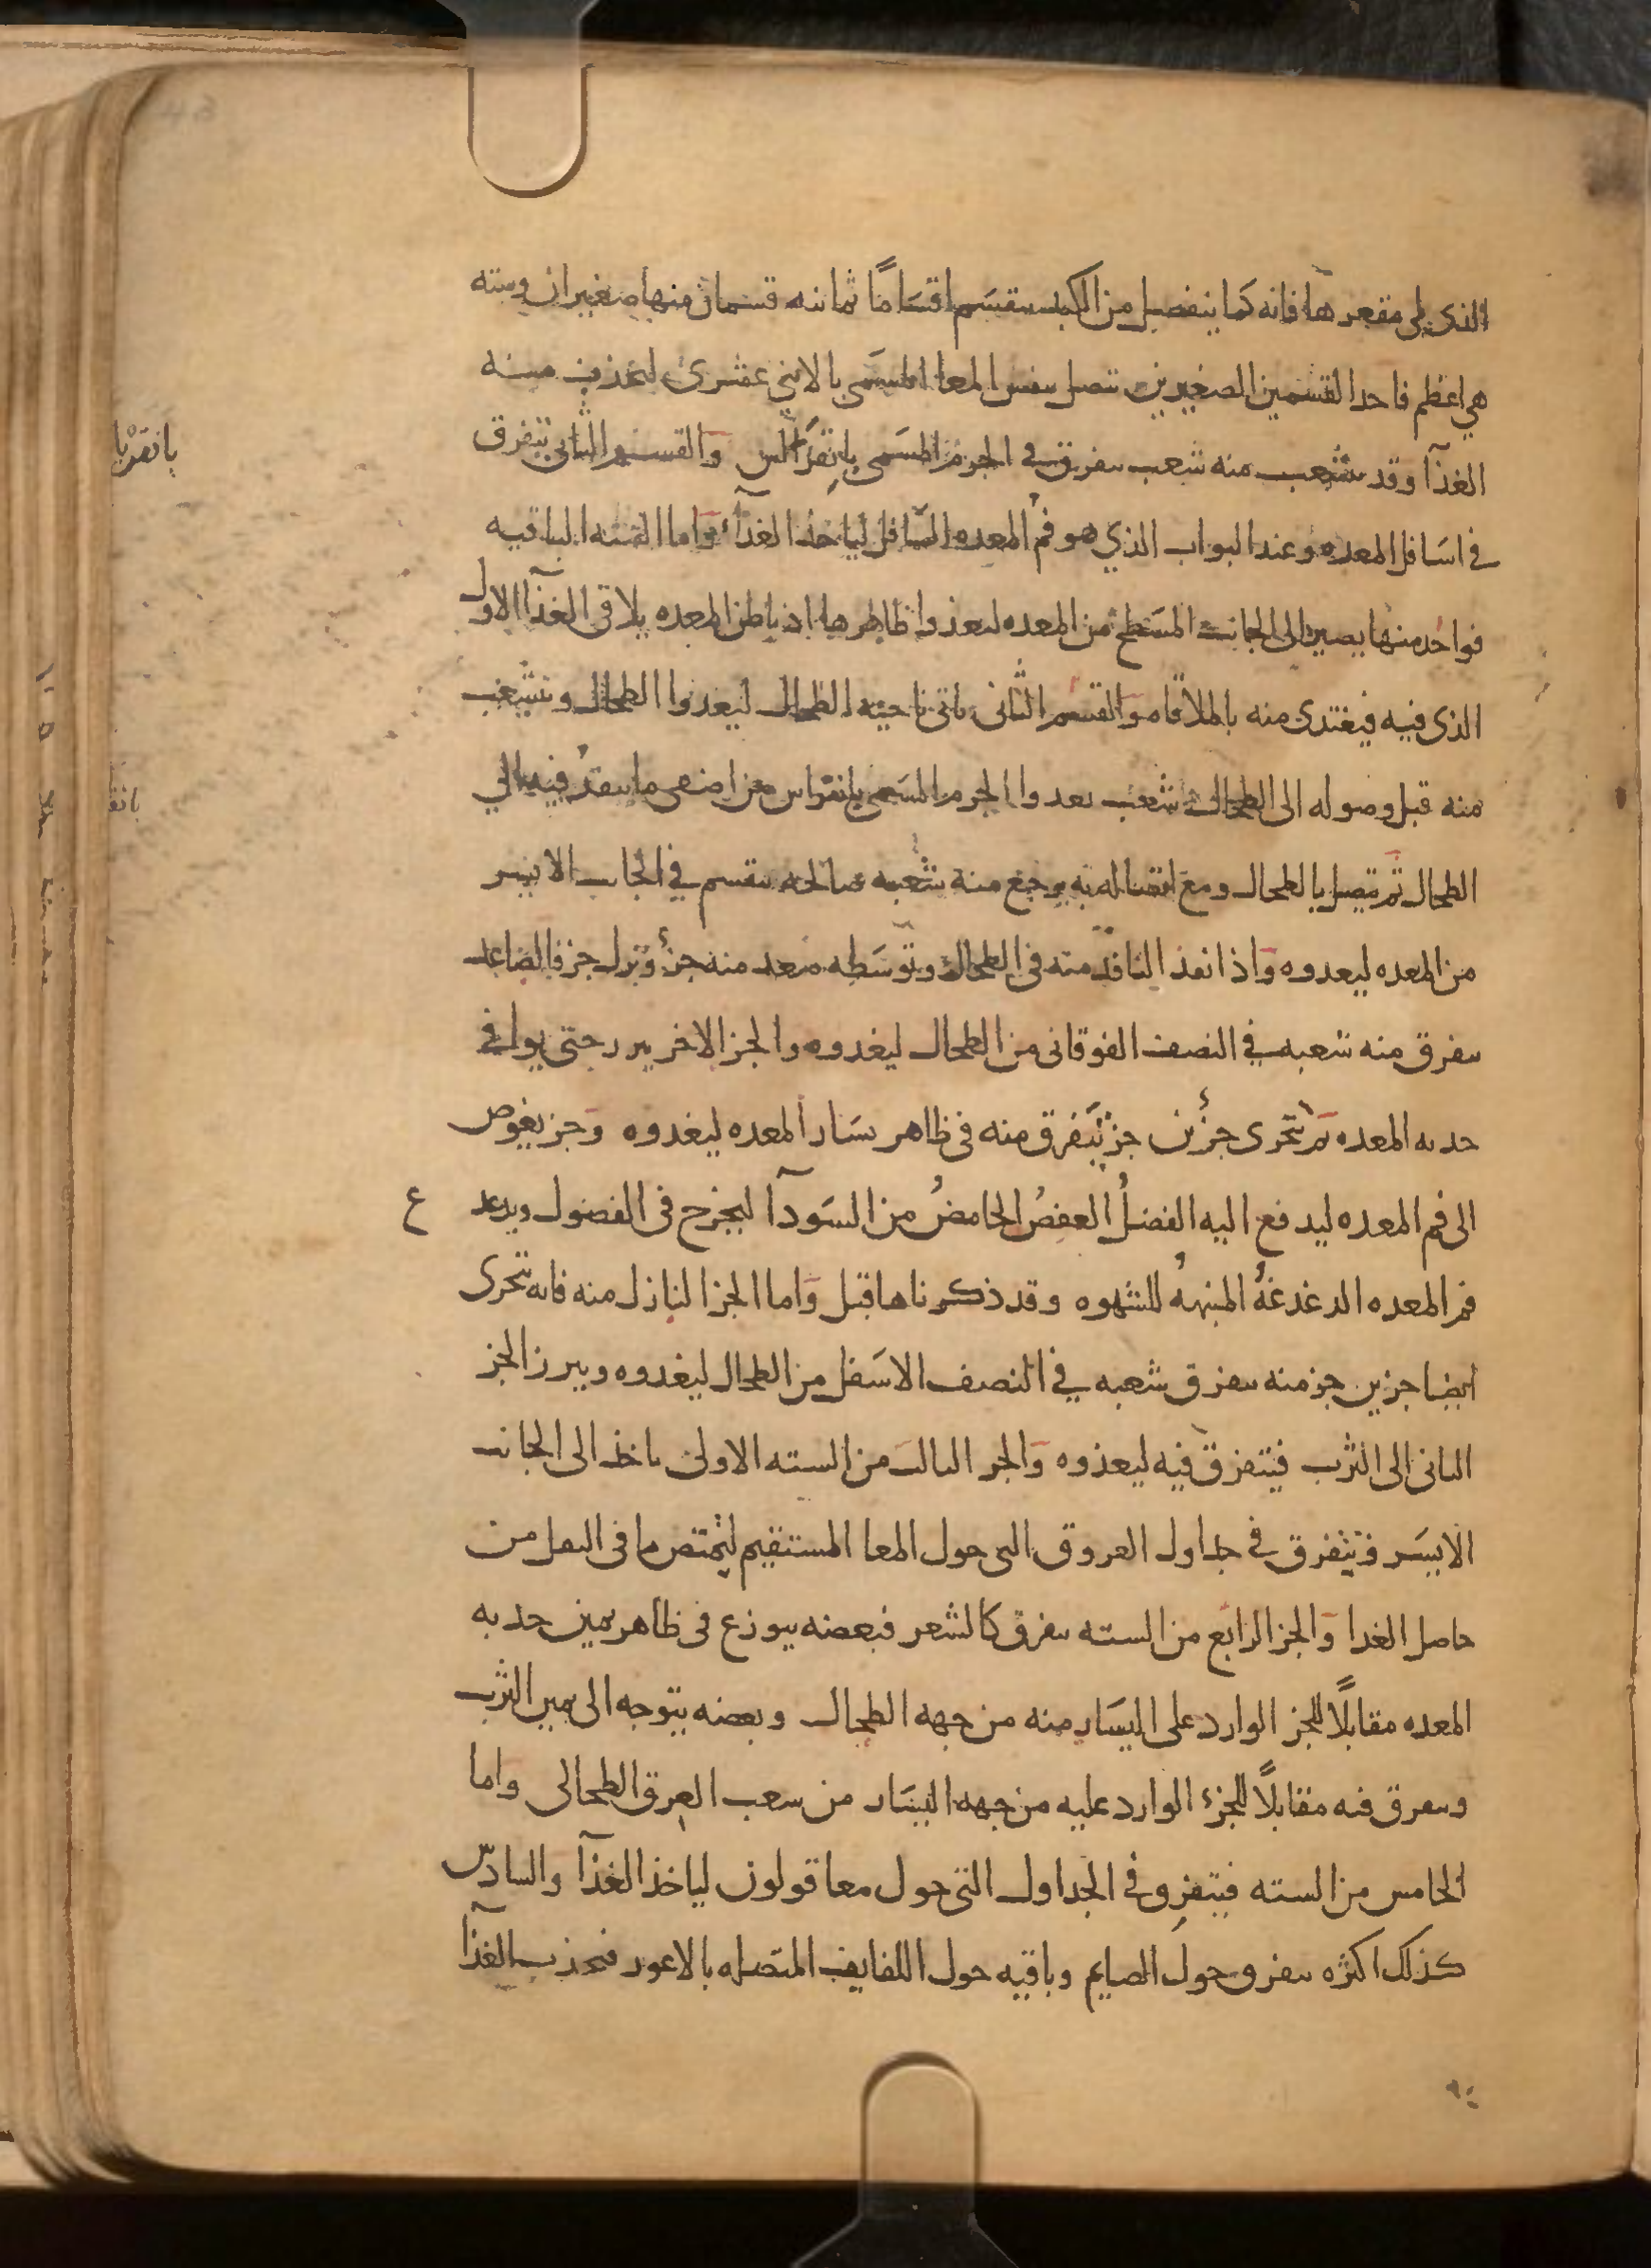 الذى يلى مقعرها فانه كما ينفصل من الكبد ينقسم اقسامًا ثمانيه قسمان منها صغيران وسته
هي اعظم فاحد القسمين الصغيرين تتصل بنفس المعا المسمى بالاثني عشرى ليجذب منه
الغذآ وقد يتشعب منه شعب يتفرق في الجرم المسمى بانقراس والقسم الثانى يتفرق
في اسافل المعده وعند البواب الذي هو فم المعده السافل لياخذ الغذآ واما السته الباقيه
فواحد منها يصير الى الجانب المسطح من المعده ليغذوا ظاهرها اذ باطن المعده يلاقى الغذآ الاول
الذى فيه فيغتدى منه بالملاقاه والقسم الثانى ياتى ناحيه الطحال ليغدوا الطحال وتتشعب
منه قبل وصوله الى الطحال شعب يغدوا الجرم المسمى بانقراس من اصفى ما ينفد فيه الي
الطحال ثم يتصل بالطحال ومع اتصاله به يرجع منه شعبه صالحه ينقسم في الجانب الايسر
من المعده ليغدوه واذا نفذ النافذ منه في الطحال وتوسطه صعد منه جزء ونزل جز فالصاعد
يتفرق منه شعبه في النصف الفوقانى من الطحال ليغدوه والجز الاخر يبرز حتى يوافى
حدبه المعده ثم يتجزى جزئين جز يتفرق منه في ظاهر يسار المعده ليغدوه وجز يغوص
الى فم المعده ليدفع اليه الفضلُ العفصُ الحامضُ من السودآ ليخرج فى الفضول ويدغدغ
فم المعده الدغدغةُ المنبهه للشهوه وقد ذكرناها قبل واما الجز النازل منه فانه يتجزى
ايضا جزين جز منه يتفرق شعبه في النصف الاسفل من الطحال ليغدوه ويبرز الجز
الثانى الى الثرب فيتفرق فيه ليغذوه والجز الثالث من السته الاولى ياخذ الى الجانب
الايسر فيتفرق في جداول العروق التى حول المعا المستقيم ليمتص ما فى الثفل من
حاصل الغدا والجز الرابع من السته يتفرق كالشعر فبعضه يتوزع فى ظاهر يمين حدبه
المعده مقابلًا للجز الوارد على اليسار منه من جهه الطحال وبعضه يتوجه الى يمين الثرب
ويتفرق فيه مقابلًا للجزء الوارد عليه من جهه اليسار من شعب العرق الطحالى واما
الخامس من السته فيتفرق في الجداول التى حول معا قولون لياخذ الغذآ والسادس
كذلك اكثره يتفرق حول الصايم وباقيه حول اللفايف المتصله بالاعور فيجذب الغذآ